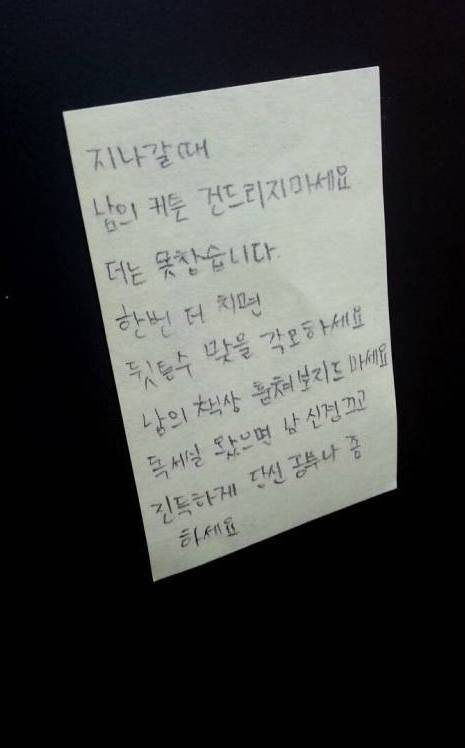 지나갈때
남의 커튼 건드리지마세요
더는 못참습니다.
한번 더 치면
뒷통수 맞을 각오하세요
남의 책상 훔쳐보지도 마세요
독서실 왔으면 남 신경끄고
진득하게 당신 공부나 좀
하세요